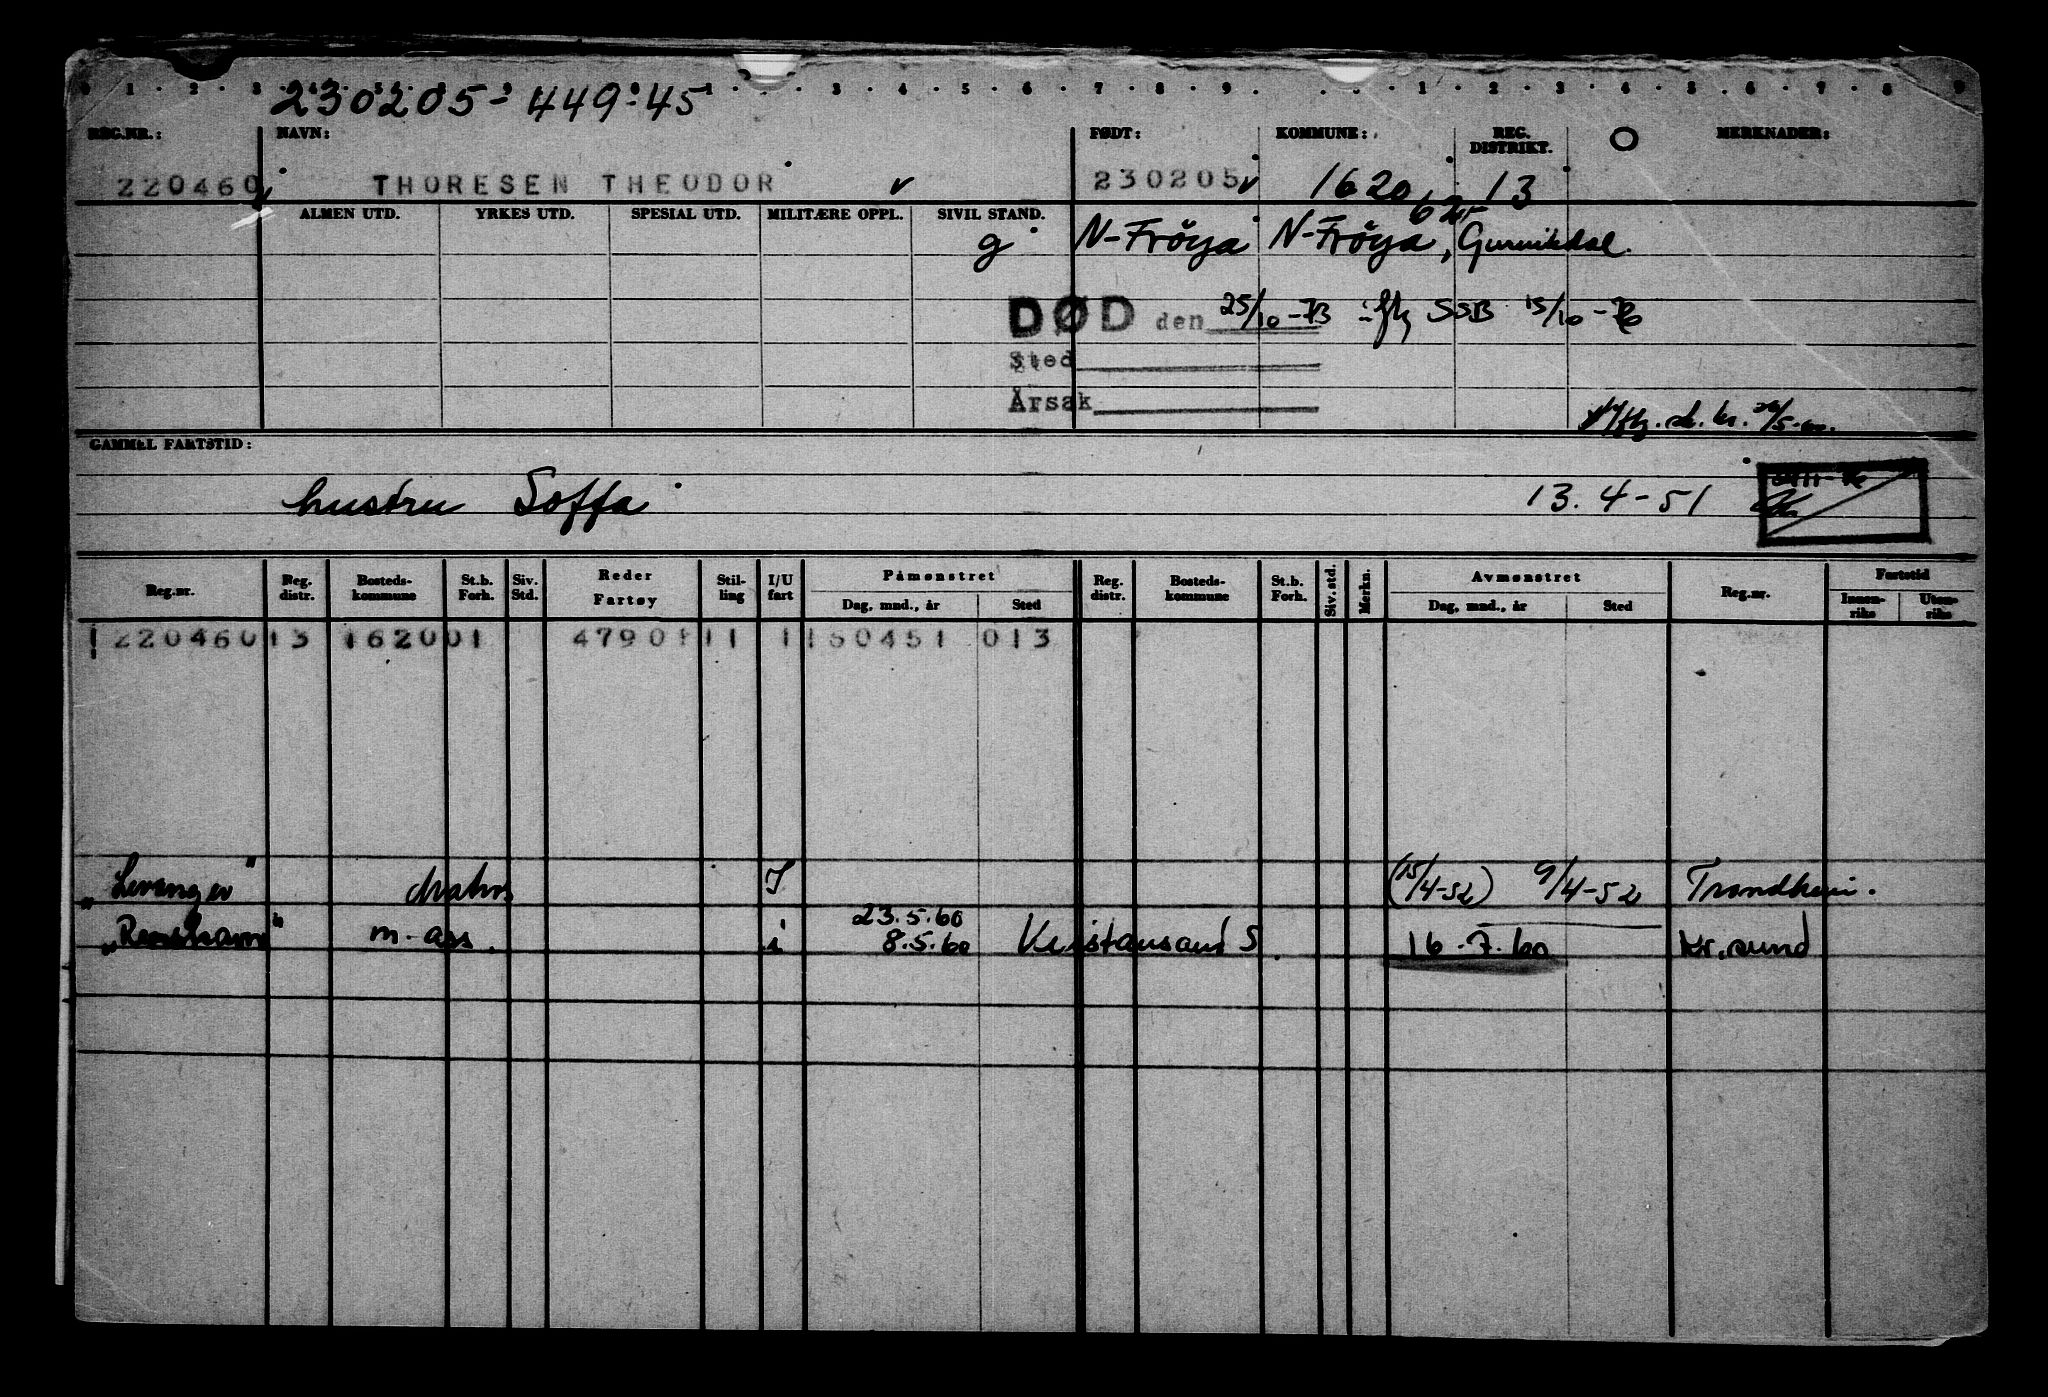 0 · 1 · 2 · 3 · · · 3 · 4 · 5 · 6 · 7 · 8 · 9 · · · · 1 · 2 · 3 · 4 · 5 · 6 · 7 · 8 · 9
230205-449·45
REG.NR.: NAVN: FØDT: KOMMUNE: REG. DISTRIKT. O MERKNADER:
220460 THORESEN THEODOR v 230205 v 1620 13
ALMEN UTD. YRKES UTD. SPESIAL UTD. MILITÆRE OPPL. SIVIL STAND.
g N-Frøya N-Frøya,
DØD den 25/10-73 SSB 15/10-76
Sted
Årsak
GAMMEL FARTSTID:
hustru Soffa 13.4-51
Reg.nr. Reg. distr. Bosteds-kommune St.b. Forh. Siv. Std. Reder Fartøy Stil-ling I/U fart Påmønstret Dag, mnd., år Sted Reg. distr. Bosteds-kommune St.b. Forh. Siv. std. Merkn. Avmønstret Dag, mnd., år Sted Reg.nr. Fartstid Innen-riks Uten-riks
220460 13 1620 01 4790 1 11 1 150451 013
„Levanger" Matros I (15/4-52) 9/4-52 Trondheim.
23.5.60
m. ass. i 8.5.60 Kristiansand S. 16.7.60 Kr.sund